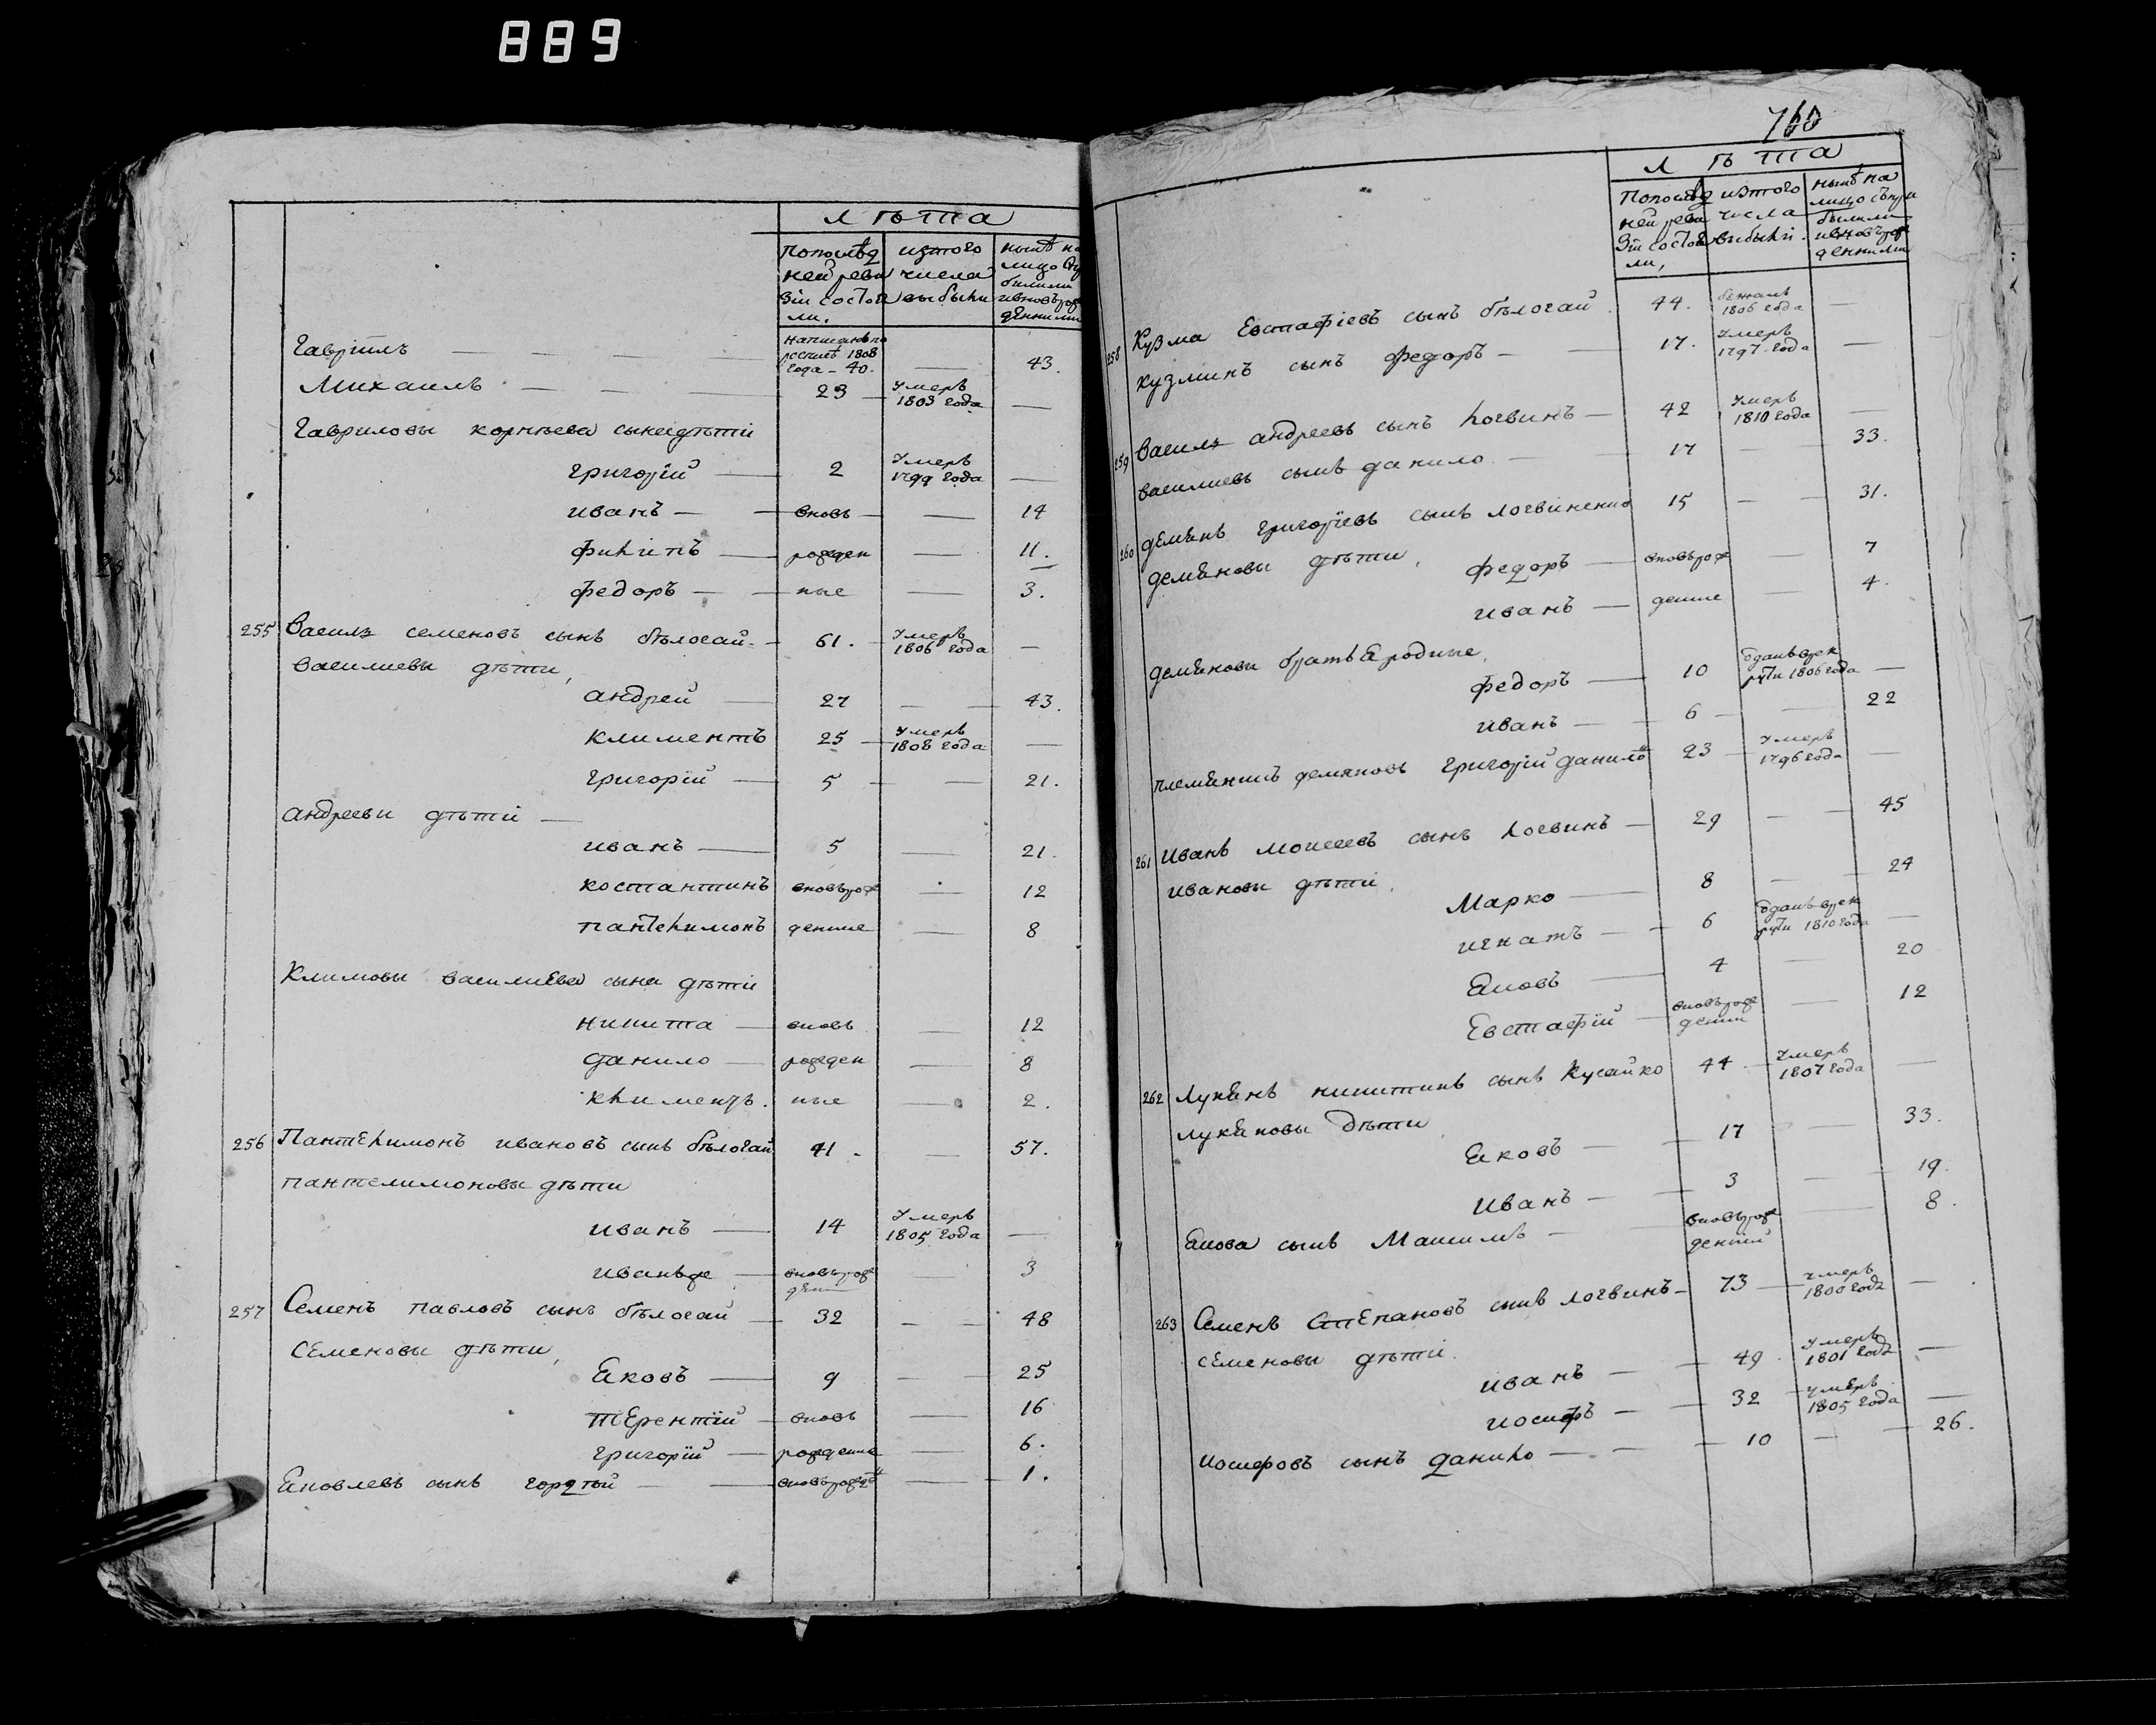 889
лѣта
попослѣд ней реви зіи состоя ли, изтого числа выбыли нынѣ на лицо
Гавріилъ — написанъ по 1808 года - 40. — 43.
Михаилъ — 23 умеръ 1803 года —
Гавриловы корнѣева сына дѣти
григорїй — 2 умеръ 1799 года —
иванъ — вновь — 14
филипъ — рожден — 11.
федоръ — ные — 3.
255 Василь семеновъ сынъ бѣлогай - 61. умеръ 1806 года —
василиевы дѣти,
андрей — 27 — 43.
климентъ 25 умеръ 1808 года —
григорїй — 5 — 21.
андреевы дѣти —
иванъ — 5 — 21.
костантинъ вновьрож — 12
пантелимонъ денные — 8
Климовы василиева сына дѣти
никита — вновь — 12
данило — рожден — 8
климентъ. ные — 2.
256 Пантелимонъ ивановъ сынъ бѣлогай 41 - — 57.
пантелимоновы дѣти
иванъ — 14 умеръ 1805 года —
иванъже — вновьрож ден — 3
257 Семенъ павловъ сынъ бѣлогай — 32 — 48
семеновы дѣти,
Яковъ — 9 — 25
терентїй — вновь — 16
григорїй — рожденные — 6.
Яковлевъ сынъ гордѣй — вновьрожде — 1.
760
лѣта
попослѣд ней реви зіи состоя ли, изтого числа выбыли. нынѣ на лицо съ при былыми ивновьрож денными
258 Кузма Евстафїевъ сынъ бѣлогай. 44. бежалъ 1806 года —
кузминъ сынъ федоръ — 17. умеръ 1797 года —
259 Василь андреевъ сынъ логвинъ — 42 умеръ 1810 года —
василиевъ сынъ данило — 17 — 33.
260 демянъ григорїевъ сынъ логвиненко 15 — 31.
демяновы дѣти,
федоръ — вновьрож — 7
иванъ — денные — 4.
демяновы братья родные,
федоръ — 10 отданъ врек руты 1806 года —
иванъ — 6 — 22
племянникъ демяновъ григорїй данило 23 умеръ 1796 года —
261 иванъ моисеевъ сынъ логвинъ — 29 — 45
ивановы дѣти,
Марко — 8 — 24
игнатъ — 6 отданъ врек руты 1810 года —
Яковъ — 4 — 20
Евстафїй — вновьрож денны — 12
262 лукянъ никитинъ сынъ Кусайко 44. умеръ 1807 года —
лукяновы дѣти
Яковъ — 17 — 33.
иванъ — 3 — 19.
Якова сынъ Максимъ — вновьрож денный — 8.
263 Семенъ Степановъ сынъ логвинъ — 73 умеръ 1800 года —
семеновы дѣти.
иванъ — 49. умеръ 1801 года —
иосифъ — 32 умеръ 1805 года —
иосифовъ сынъ данило — 10 — 26.